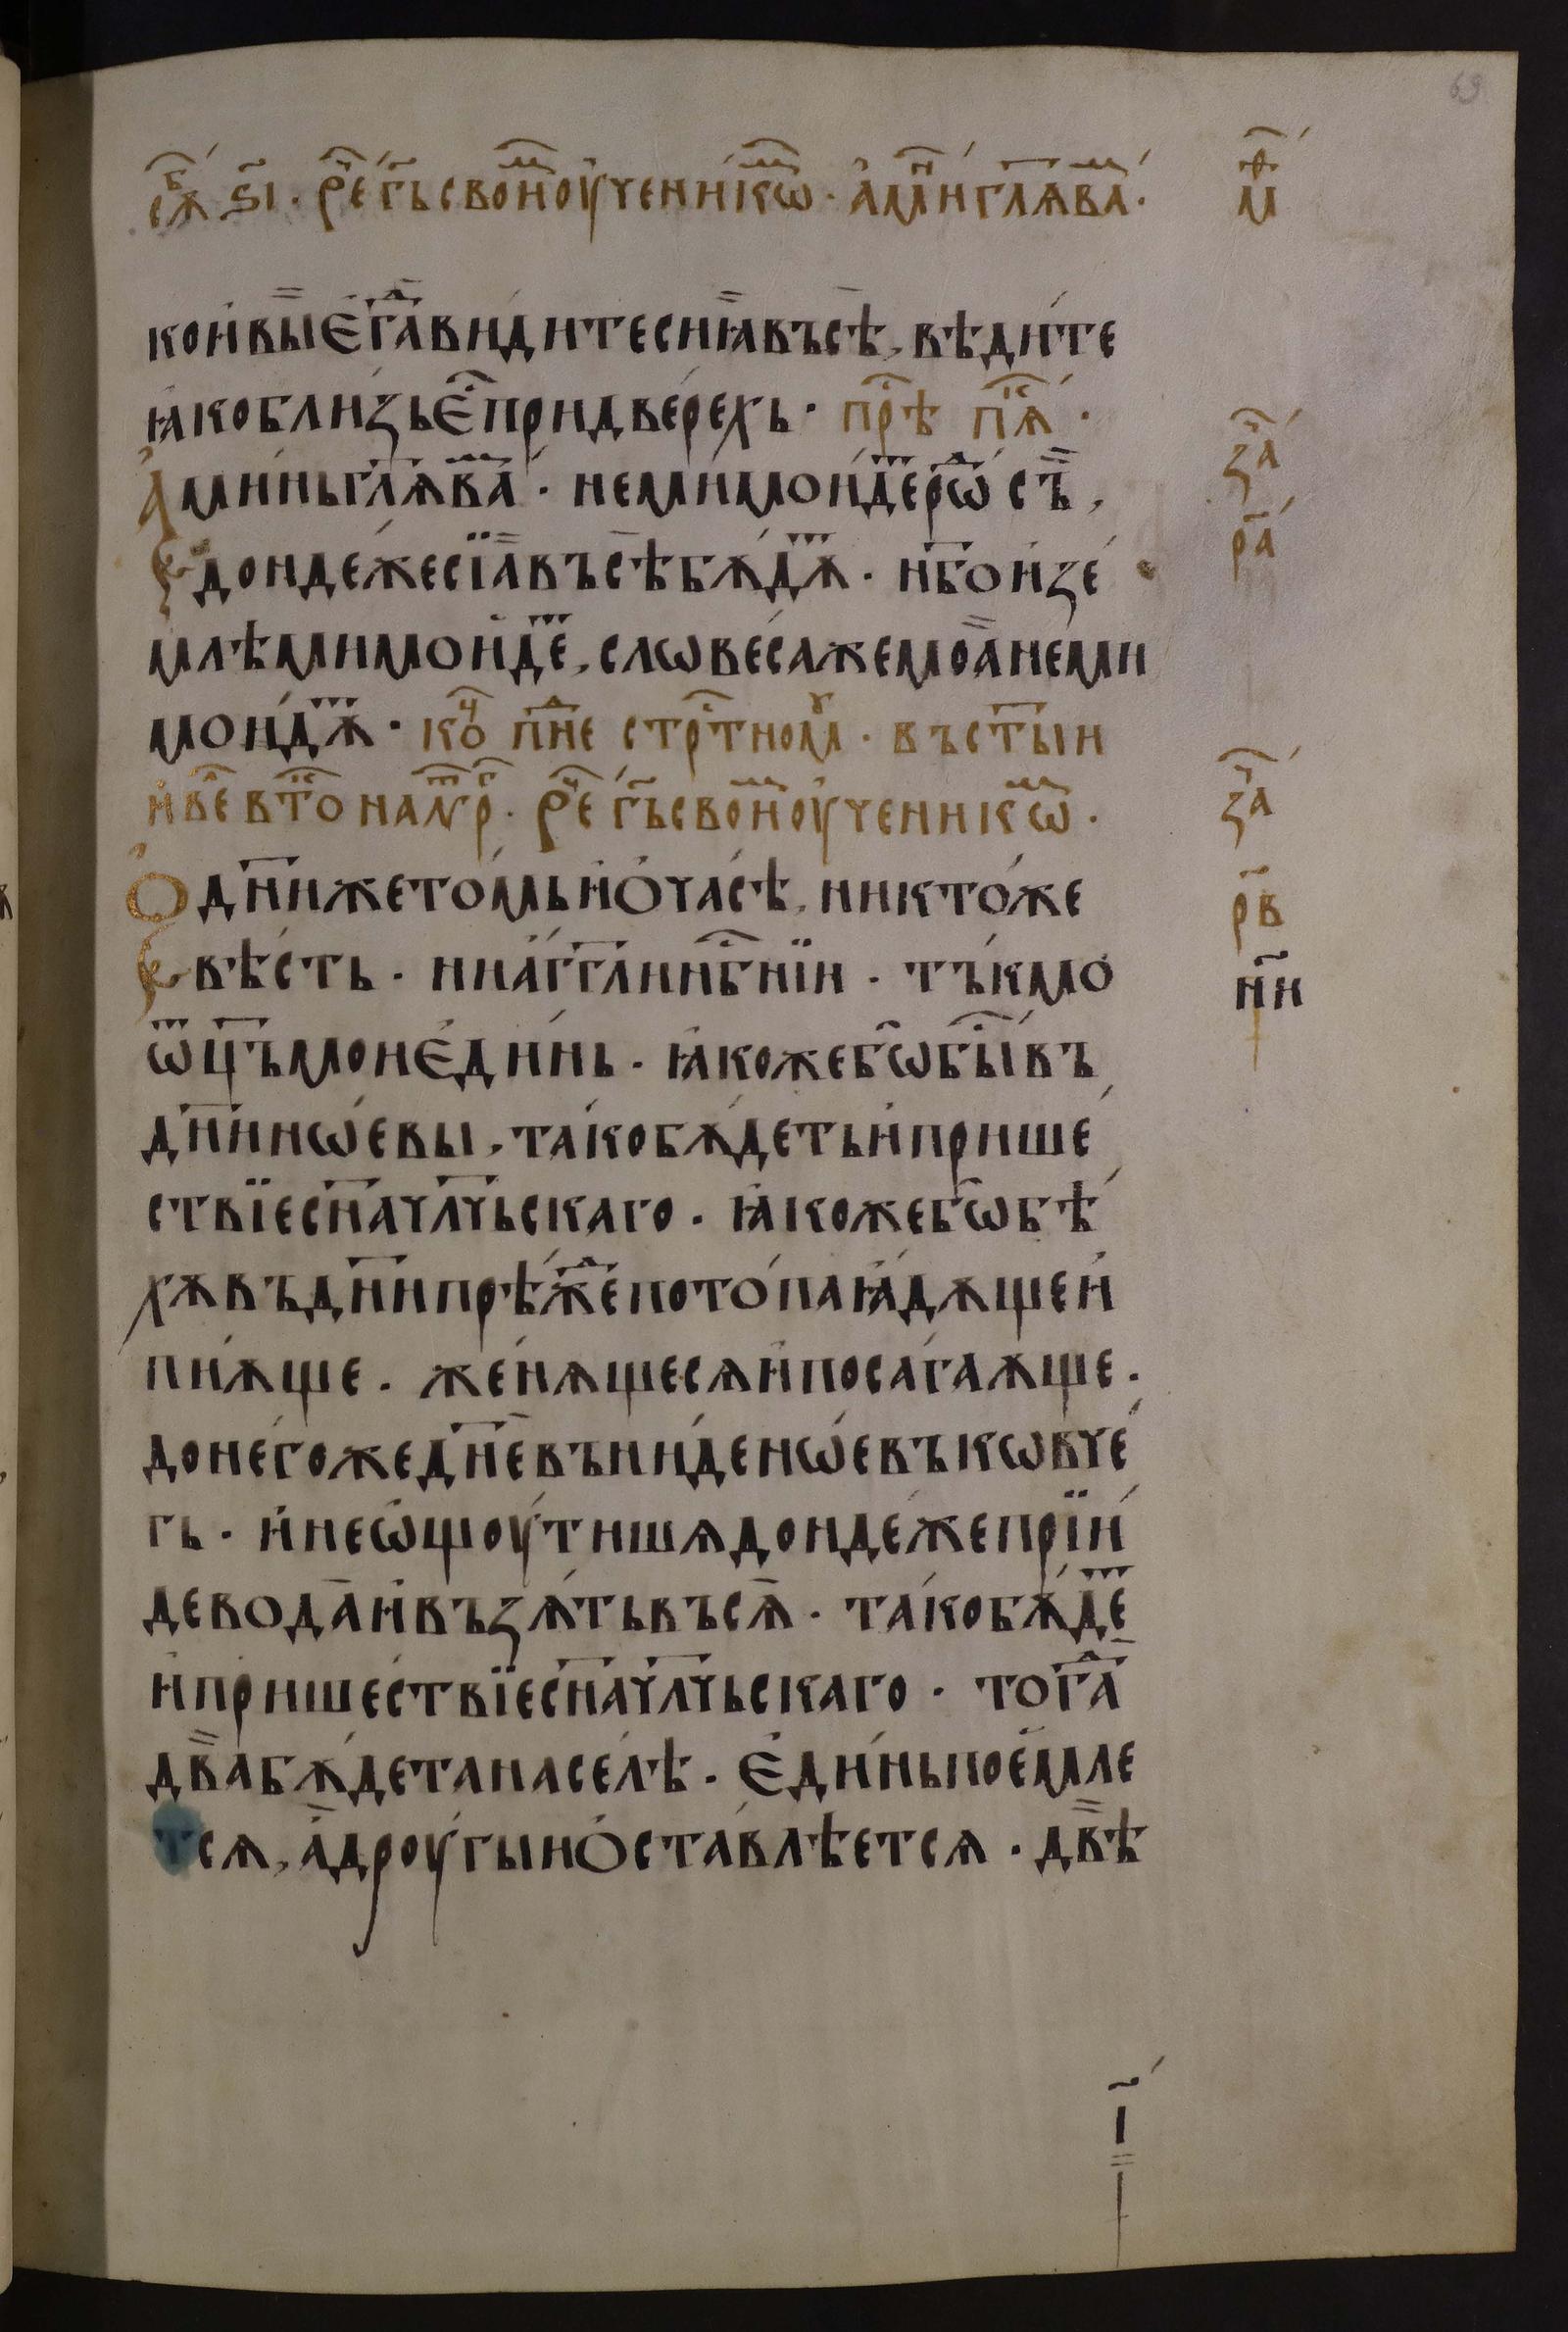 69
сѫⷠ҇ ѕ҃і · рⷱ҇е г҃ь своиⷨ҇ оу҆ченикѡⷨ҇ · а҆миⷩ҇ гл҃ѧ ва́ⷨ · мⷴ҇
кои҆вы̏є҆гⷣа̀видитесиꙗ҆въсѣ̀, вѣди́те
ꙗ҆коблиꙁьє҆ⷭ҇придве́рехь · прⷭ҇ѣ пиⷭ҇ѧ ·
А҆ми́ньгл҃ѧва́ⷨ · немимои́деⷮрѡⷣ҇съ̏, ꙁⷱ҇а
дондежесїа̏въсѣбѫ́дѫⷮ · нб҃ои҆ꙁе р҃а
млѣмимои́деⷮ, слѡвесажемоа̏неми
мои́дѫⷮ · коⷰ҇ пⷩ҇еⷣ стрⷭ҇тномꙋ · въ ст҃ыи
и҆ веⷧ҇ втⷪ҇ни наⷮ утрⷢ҇ · рⷱ҇е г҃ъ своиⷨ҇ оу҆ченикѡⷨ҇ · ꙁⷱ҇а
Ѻ҆дн҃ижето́мьи҆ѻ҆ча́сѣ, никто́же р҃в
вѣ́сть · ниа҆́гг҃линнбⷭ҇нїи · тъ́кмо н҃и
ѿц҃ъмоиє҆ди́нь · ꙗ҆кожебѡ̑бы́ⷭ҇въ
дн҃инѡ́евы, та́кобѫ́детьи҆прише́
ствїесн҃ачл҃чьскаго · ꙗ҆кожебѡ̑бѣ́
хѫвъдн҃ипрѣ́жеⷣпото́паꙗ҆дѫщеи҆
пи́ѫще · же́нѧщесѧи҆посагаѫще ·
донегожедн҃евъни́денѡ́евъкѡвче́
гь · и҆неѡ҆щоу́тишѧдонде́жепрїи́
девода̀и҆въꙁѧ́тьвъсѧ̀ · та́кобѫ́деⷮ
и҆прише́ствїесн҃ачл҃чьскаго · тогⷣа̀
два̏бѫ́детанаселѣ · є҆ди́ньпое́мле
тсѧ, а҆дроу́гыиѻ҆ста́влѣетсѧ · двѣ̏
і҃